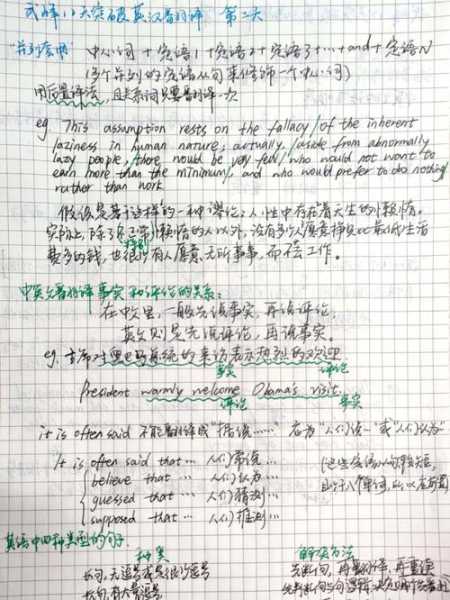 武峰12天突破英汉翻译 第二天
"并列套用" 中心词 + 定语1 + 定语2 + 定语3 + … + and + 定语N
(多个并列的定语从句来修饰一个中心词)
用后置译法，且关系词只要翻译一次
eg. This assumption rests on the fallacy / of the inherent
laziness in human nature; actually, / aside from abnormally
lazy people, / there would be very few / who would not want to
earn more than the minimum /, and who would prefer to do nothing
rather than work.
假设是基于这样的一种谬论：人性中存在着天生的懒惰。
实际上，除了
的人以外，没有多少人愿意挣
最低生活
费多的钱，也很少有人愿意无所事事，而不去工作。
中英文翻译事实和评论的关系：
在中文里，一般先说事实，再说评论。
英文则是先说评论，再说事实。
eg. 主席对奥巴马总统的来访表示热烈的欢迎
事实 评论
President warmly welcome Obama's visit.
评论 事实
it is often said 不能翻译成"据说……" 应为"人们说…"或"人们认为"
It is often said that … 人们常说…
believe that … 人们认为…
guessed that … 人们猜测…
supposed that … 人们推测…
英语中四种类型的句子
种类 解决方法
长句，无逗号或是很少逗号 先断句，再翻译，再重读
长句，有大量逗号